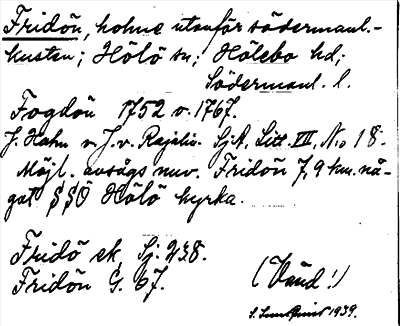 Fridön, holme utanför södermanl.-
kusten; Hölö sn; Hölebo hd;
Södermanl. l.
Fogdön 1752 o. 1767.
J. Hahn o. J. v. Rajalin. SjA, Litt. VII, No 18.
Möjl. avsågs nuv. Fridön 7,9 km nå-
got SSÖ Hölö kyrka.
Fridö ek, Sj. 238.
Fridön G. 67.
(Vänd!)
1939.